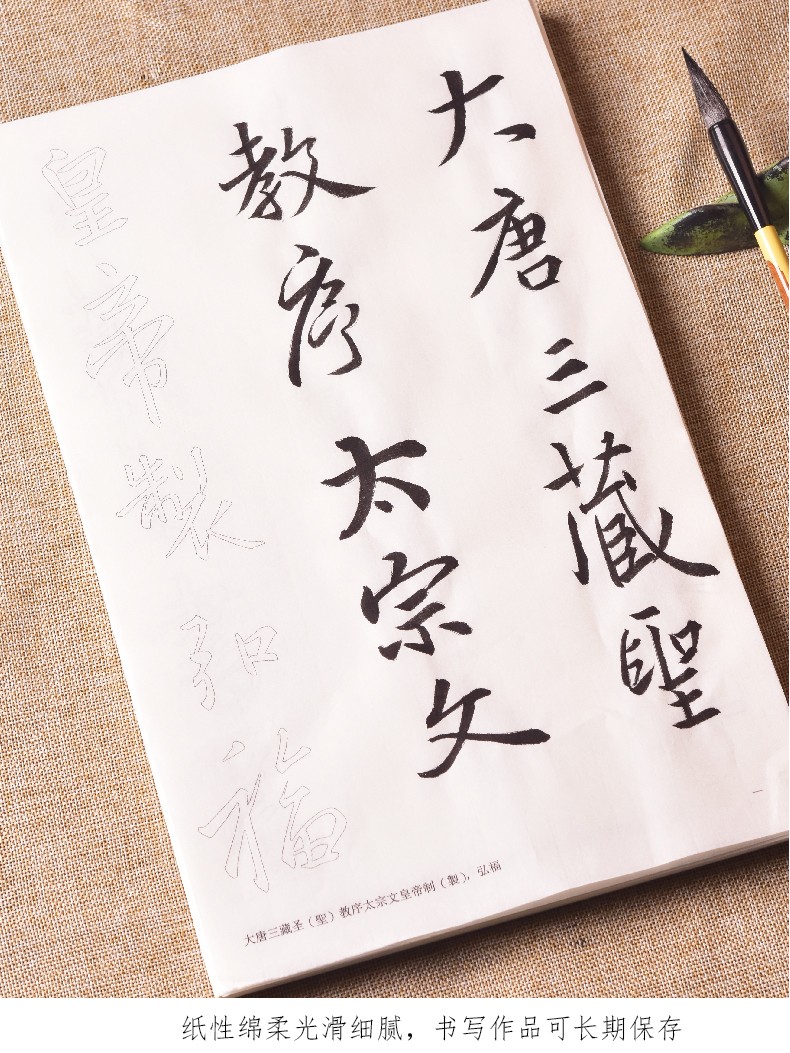 大唐三藏聖
教序太宗文
皇帝製弘福
大唐三藏圣（聖）教序太宗文皇帝制（製），弘福
一
纸性绵柔光滑细腻，书写作品可长期保存